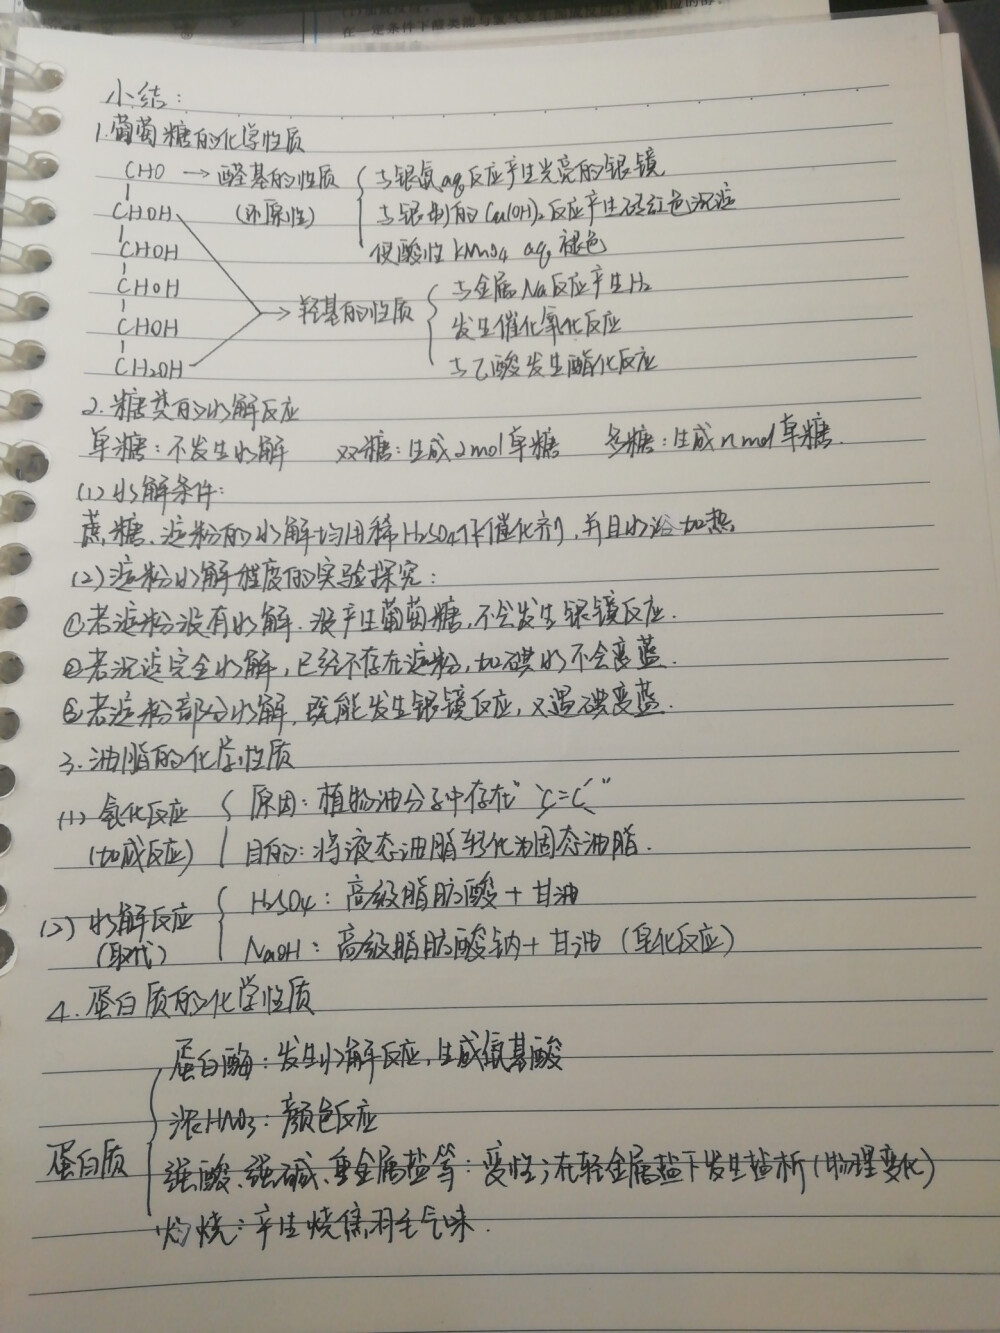 小结:
1.葡萄糖的化学性质
CHO → 醛基的性质 与银氨aq反应产生光亮的银镜
CHOH (还原性) 与银制的Cu(OH)₂反应产生砖红色沉淀
CHOH 使酸性KMnO₄ aq 褪色
CHOH 与金属Na反应产生H₂
→羟基的性质
CHOH 发生催化氧化反应
CH₂OH 与乙酸发生酯化反应
2.糖类的水解反应
单糖:不发生水解 双糖:生成2mol单糖 多糖:生成nmol单糖.
(1)水解条件:
蔗糖、淀粉的水解均用稀H₂SO₄作催化剂,并且水浴加热.
(2)淀粉水解程度的实验探究:
①若淀粉没有水解.没产生葡萄糖,不会发生银镜反应.
②若沉淀完全水解,已经不存在淀粉,加碘水不会变蓝.
③若淀粉部分水解,既能发生银镜反应,又遇碘变蓝.
3.油脂的化学性质
(1)氢化反应 原因:植物油分子中存在“C=C”
(加成反应) 目的:将液态油脂转化为固态油脂.
(2)水解反应 H₂SO₄:高级脂肪酸+甘油
(取代) NaOH:高级脂肪酸钠+甘油(皂化反应)
4.蛋白质的化学性质
蛋白酶:发生水解反应,生成氨基酸
浓HNO₃:颜色反应
蛋白质 强酸、强碱、重金属盐等:变性;在轻金属盐下发生盐析(物理变化)
灼烧:产生烧焦羽毛气味.